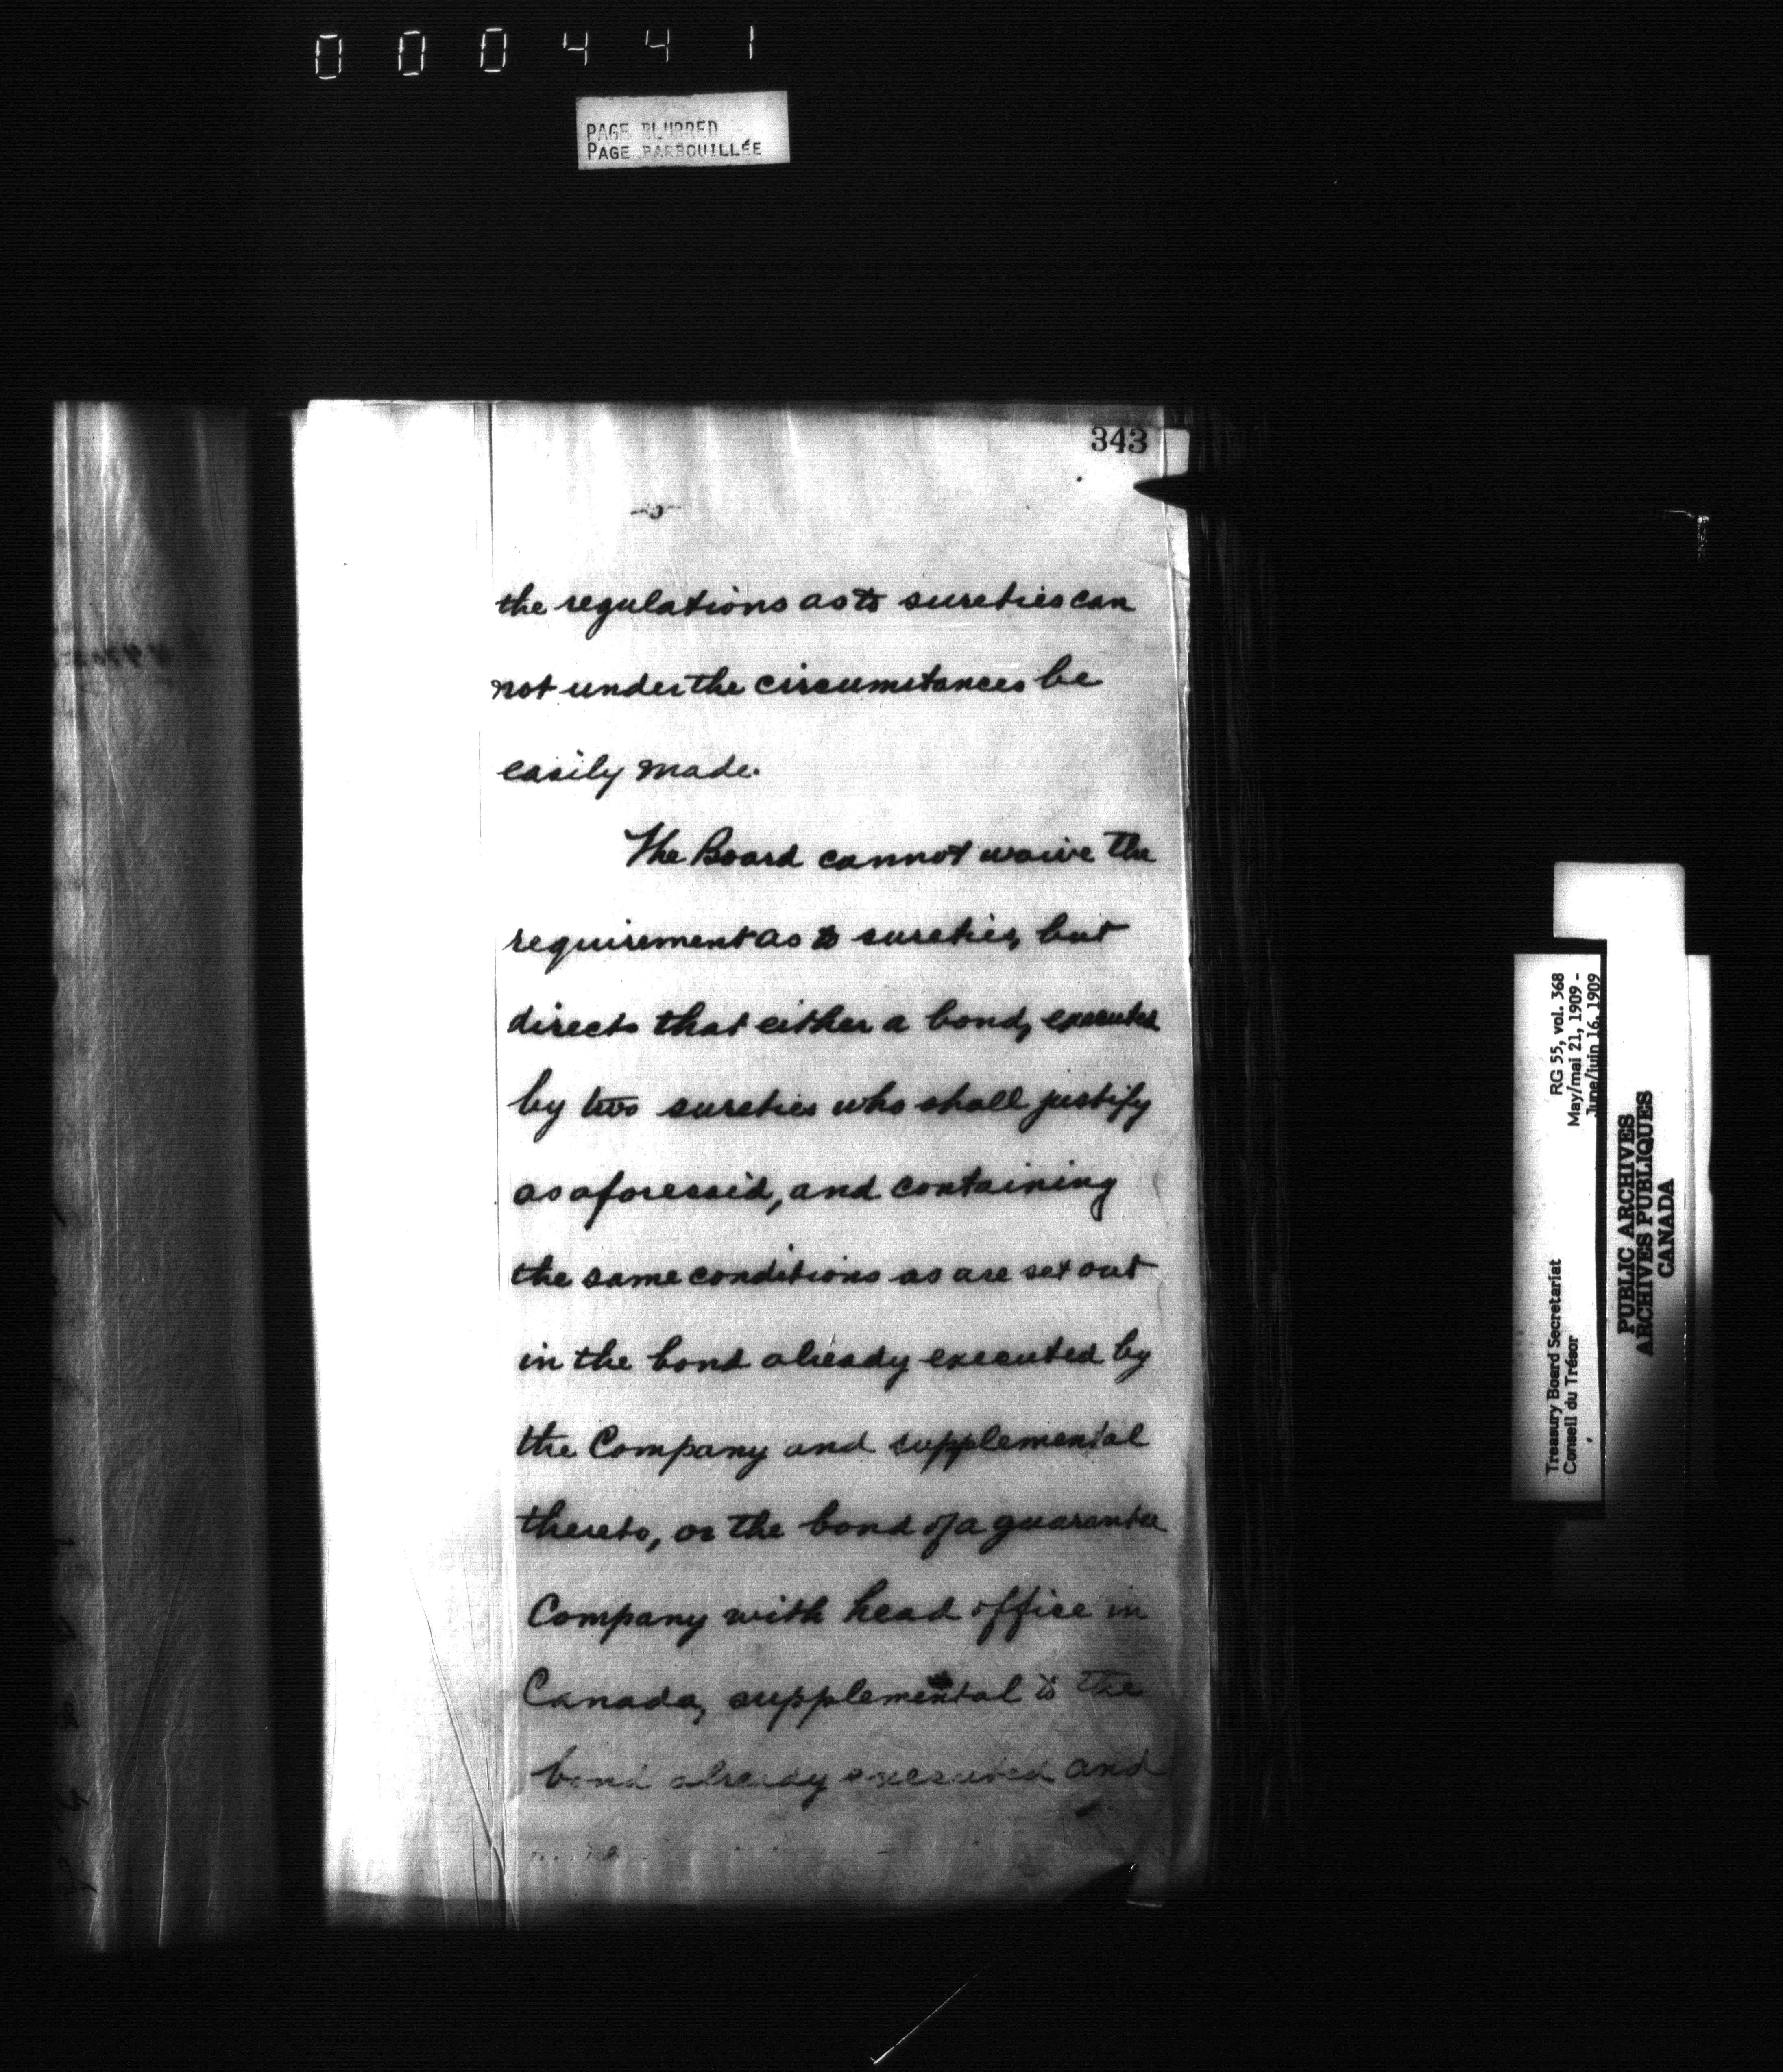 000441
PAGE BLURRED
PAGE BARBOUILLÉE
343
the regulations as to sureties can
not under the circumstances be
easily made.
The Board cannot waive the
requirement as to sureties, but
directs that either a bond, executed
by two sureties who shall justify
as aforesaid, and containing
the same conditions as are set out
in the bond already executed by
the Company and supplemental
thereto, or the bond of a guarantee
Company with head office in
Canada, supplemental to the
bond already executed and
RG 55, vol. 368
May/mai 21, 1909 -
June/juin 16, 1909
Treasury Board Secretariat
Conseil du Trésor
PUBLIC ARCHIVES
ARCHIVES PUBLIQUES
CANADA